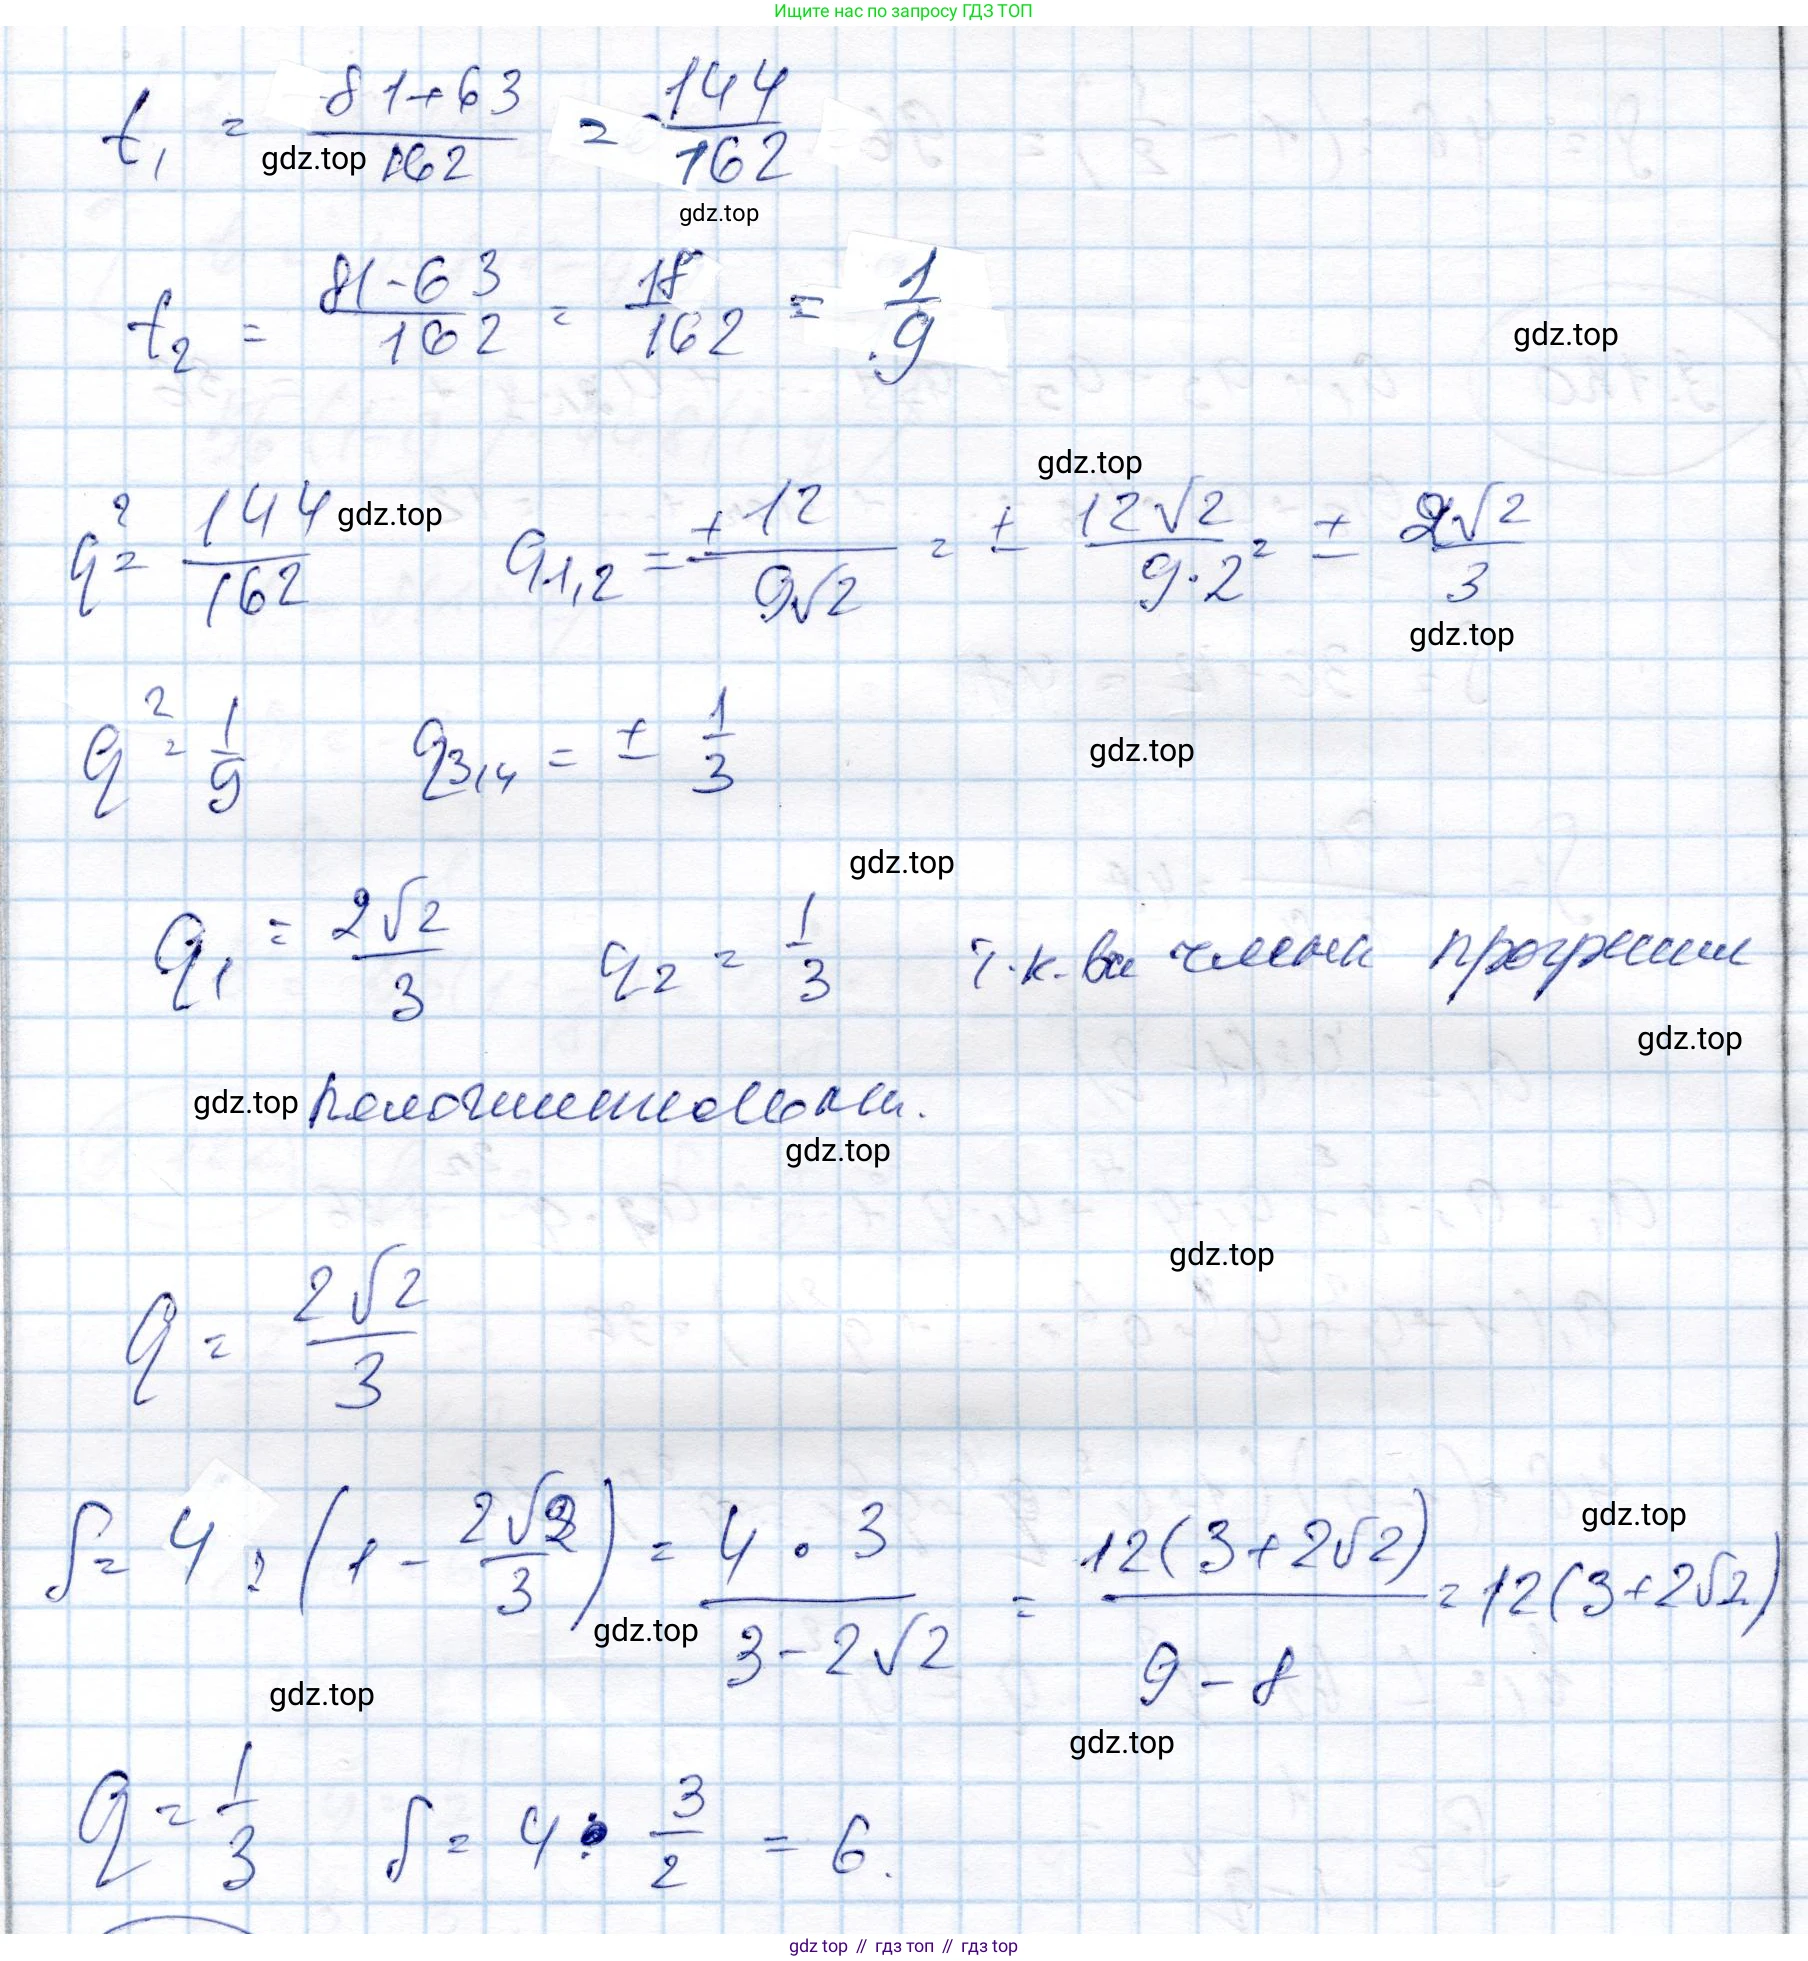 Ищите нас по запросу ГДЗ ТОП
t₁ = (81+63)/162 = 144/162
gdz.top
gdz.top
t₂ = (81-63)/162 = 18/162 = 1/9
gdz.top
gdz.top
q² = 144/162 gdz.top q₁,₂ = ±12/(9√2) = ± 12√2/(9·2) = ± 2√2/3
gdz.top
q² = 1/9 q₃,₄ = ± 1/3 gdz.top
gdz.top
q₁ = 2√2/3 q₂ = 1/3 т.к. все члены прогрессии
gdz.top
gdz.top положительны.
gdz.top
gdz.top
q = 2√2/3
S = 4 : (1 - 2√2/3) = 4 · 3/(3-2√2) = 12(3+2√2)/(9-8) = 12(3+2√2)
gdz.top
gdz.top
gdz.top
gdz.top
q = 1/3 S = 4 · 3/2 = 6.
gdz top // гдз топ // гдз top